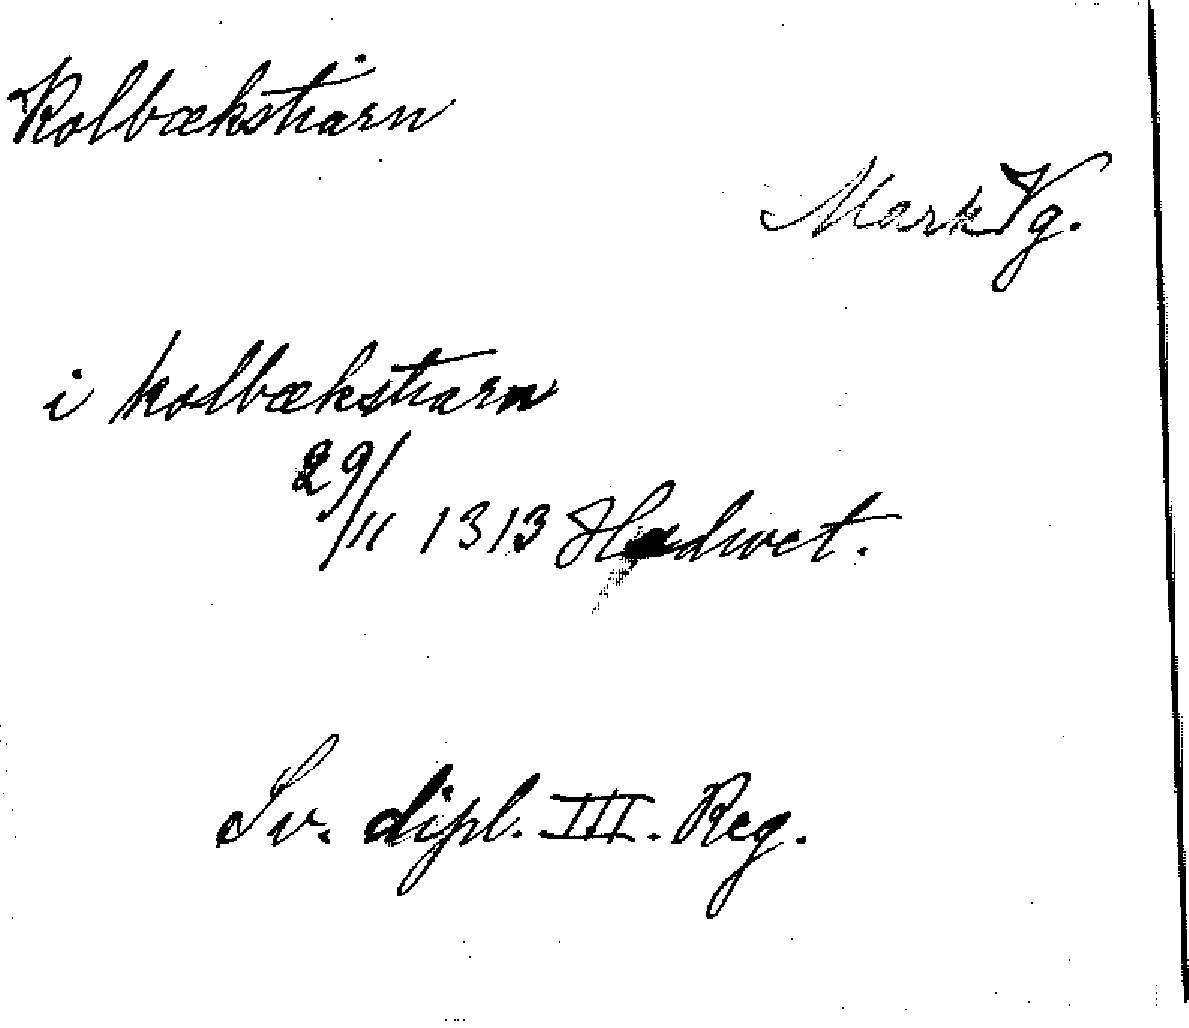 Kolbækstiarn
Mark Vg.
i kolbækstiarn
29/11 1313
Sv. dipl. III. Reg.